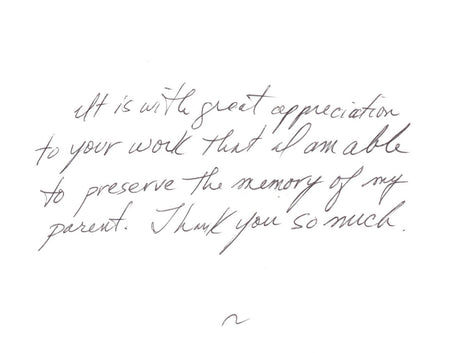 It is with great appreciation
to your work that I am able
to preserve the memory of my
parent. Thank you so much.
~